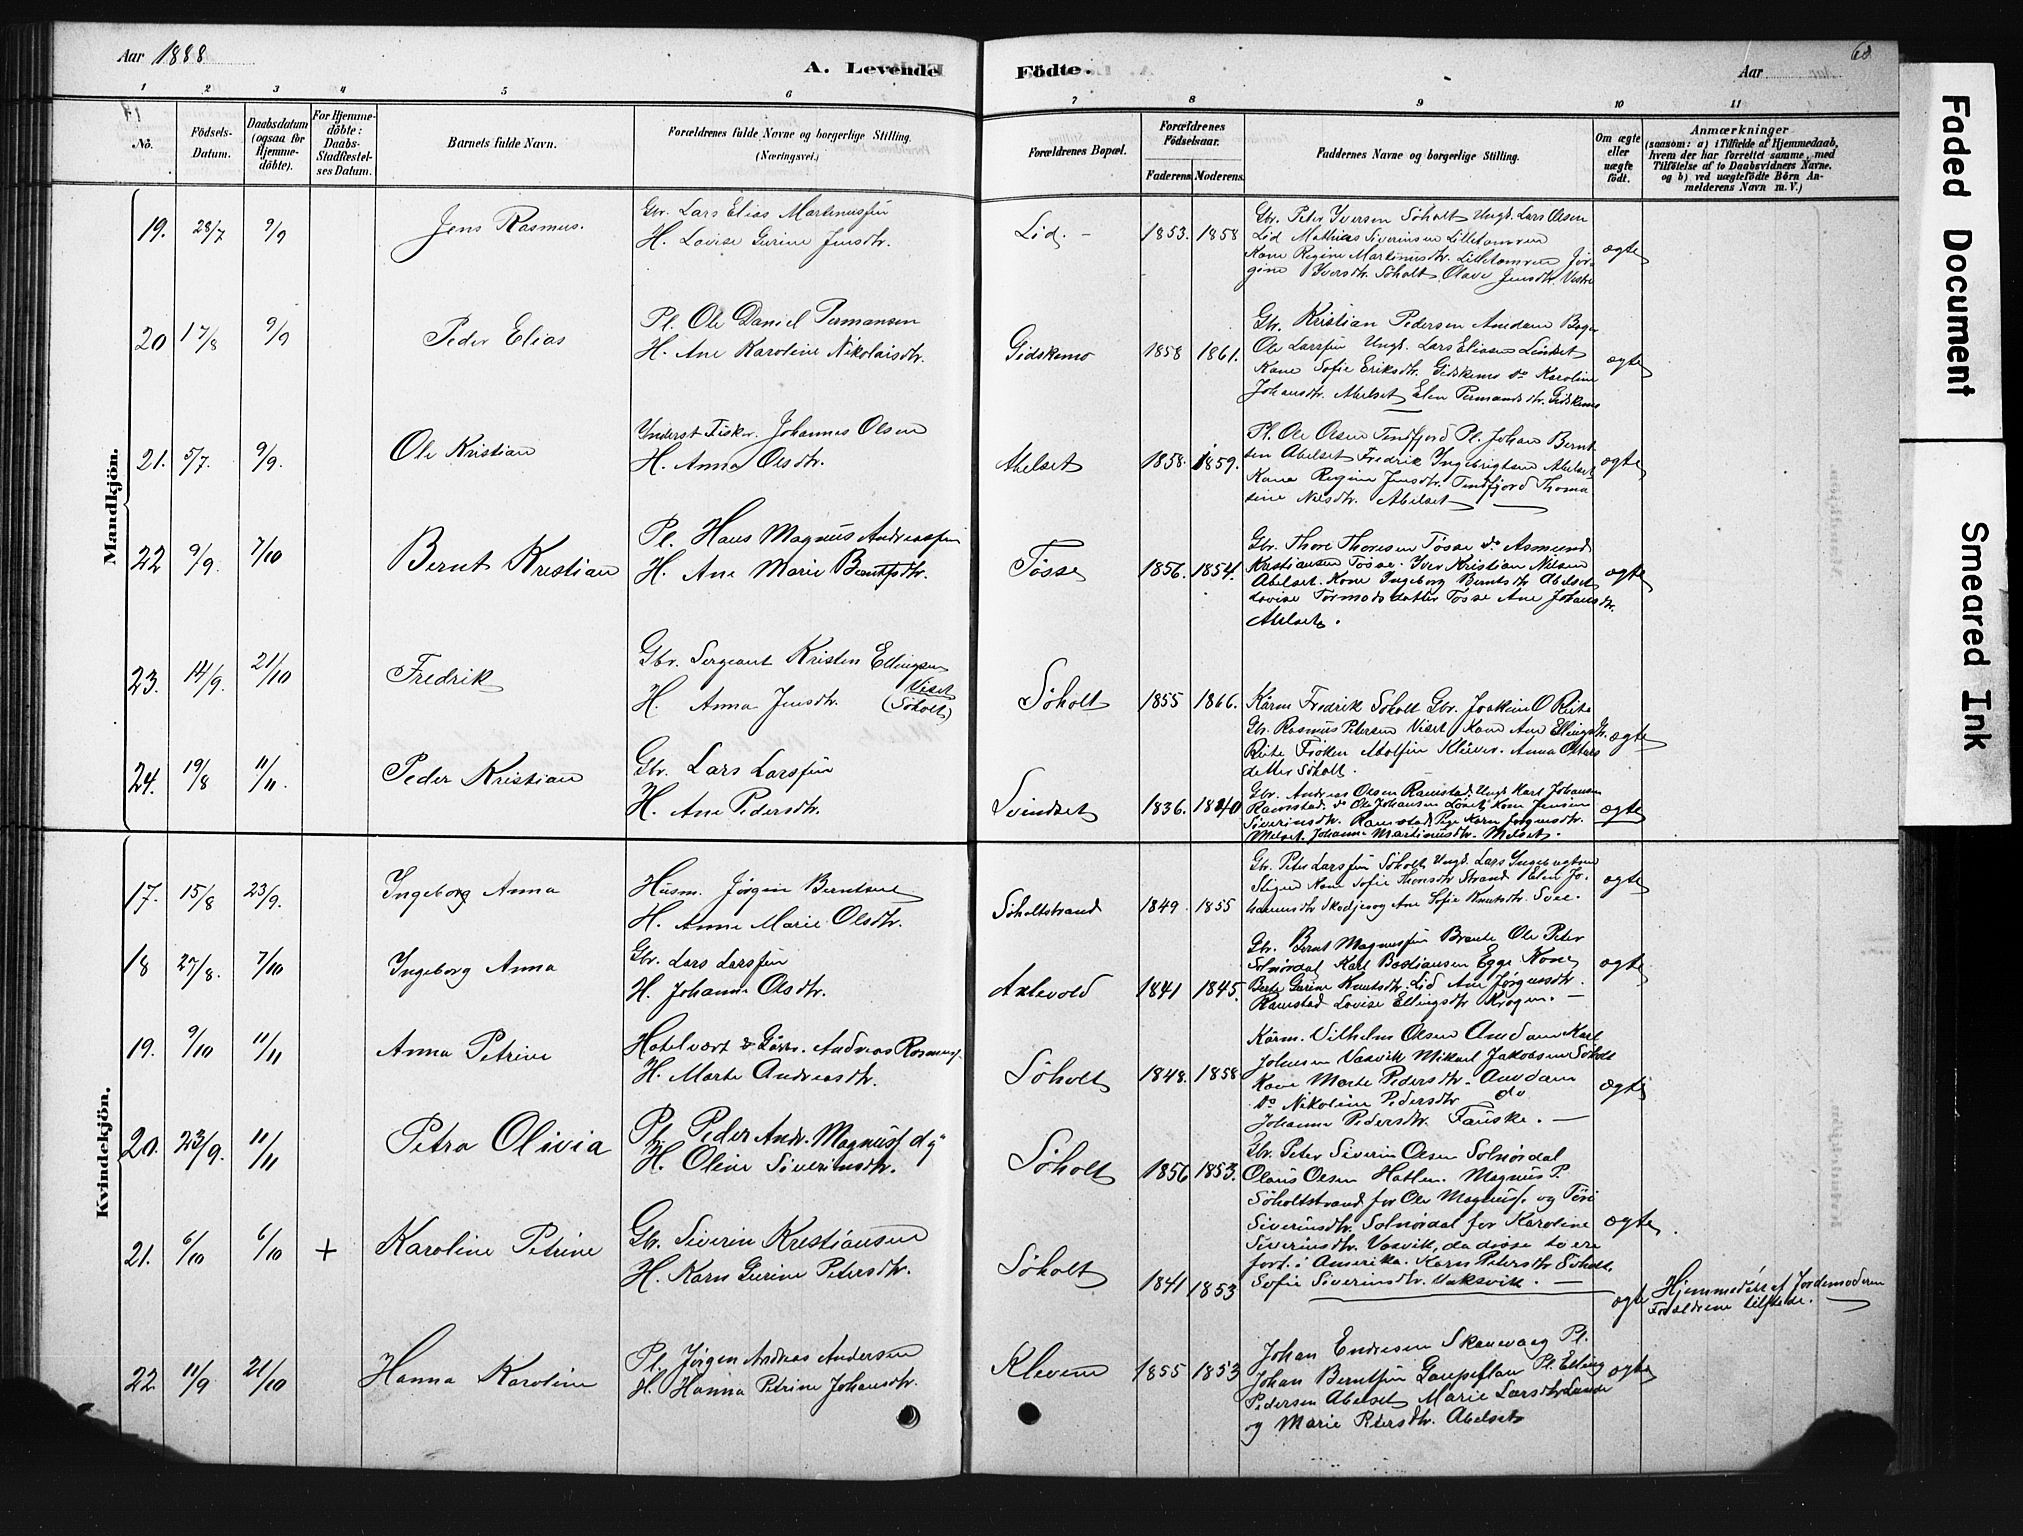 Aar 1888
A. Levende Födte.
Aar
68
1 2 3 4 5 6 7 8 9 10 11
No.
Födsels-Datum.
Daabsdatum (ogsaa for Hjemme-döbte).
For Hjemme-döbte: Daabs-Stadfestel-ses Datum.
Barnets fulde Navn.
Forældrenes fulde Navne og borgerlige Stilling. (Næringsvei.)
Forældrenes Bopæl.
Forældrenes Födselsaar.
Faderens Moderens.
Faddernes Navne og borgerlige Stilling.
Om ægte eller uægte födt.
Anmærkninger
(saasom: a) i Tilfælde af Hjemmedaab,
hvem der har forrettet samme, med
Tilföielse af to Daabsvidners Navne.
og b) ved uægtefödte Börn An-
melderens Navn m. V.)
Mandkjön.
19. 28/7 9/9 Jens Rasmus.
Gbr. Lars Elias Martinussøn
H. Lovise Gurine Jensdtr.
Lid. - 1853. 1858
Gbr. Peter Iversen Søholt Ungk. Lars Olsen
Lid Mathias Siverinsen Lilletomren
Kone Regine Martinusdtr. Lilletomren Jør-
gine Iversdtr. Søholt Olave Jensdtr. Vestre
ægte
20 17/8 9/9 Peder Elias
Pl. Ole Daniel Permansen
H. Ane Karoline Nikolaisdtr.
Gidskemo 1858 1861.
Gbr. Kristian Pedersen Amdam
Ole Larssøn Ungk. Lars Eliasen Lindset
Kone Sofie Eriksdtr. Gidskemo do Karoline
Johansdtr. Abelset Elen Permandsdtr. Gidskemo
ægte
21. 5/7. 9/9. Ole Kristian
Inderst Fisker. Johannes Olsen
H. Anna Olsdtr.
Abelset 1858. 1859.
Pl. Ole Olsen Tindfjord Pl. Johan Bernt-
sen Abelset Fredrik Ingebrigtsen Abelset
Kone Regine Jensdtr. Tindfjord Thoma
sine Nilsdtr. Abelset
ægte
22 9/9. 7/10 Bernt Kristian
Pl. Hans Magnus Andreassøn
H. Ane Marie Berntsdtr.
Tøsse 1856. 1854.
Gbr. Thore Thoresen Tøsse do Asmund
Kristiansen Tøsse. Iver Kristian Nilsen
Abelset. Kone Ingeborg Berntsdtr Abelset
Lovise Tormodsdatter Tøsse Ane Johansdtr.
Abelset.
ægte
23. 14/9. 21/10 Fredrik
Gbr. Sergeant Kristen Ellingsen Viset
H. Anna Jensdtr. (Søholt)
Søholt 1855 1866.
Kårm Fredrik Søholt Gbr. Joakim O Reite
Gbr. Rasmus Petersen Viset Kone Ane Ellingsdtr.
Reite Frøken Adolfine Klüver. Anna
datter Søholt.
ægte
24. 19/8 11/11. Peder Kristian
Gbr. Lars Larssøn
H. Ane Pedersdtr.
Svindset 1836. 1840
Gbr. Andreas Olsen Ramstad. Ungk Karl Johansen
Ramstad. do Ole Johansen Løset Kone Jensine
Siverinsdtr. Ramstad Pige Karn Jørgensdtr.
Melset. Johanne Martinusdtr. Melset.
ægte
Kvindekjön.
17. 15/8 23/9. Ingeborg Anna
Husm. Jørgen Berntsen
H. Anne Marie Olsdtr.
Søholtstrand 1849. 1855
Gbr. Peter Larssøn Søholt Ungk. Lars Ingebrigtsen
Stigen Kone Sofie Thoresdtr Strand Elen Jo-
hannesdtr Skodje og Ane Sofie Knutsdtr. Svee.
ægte
18 27/8. 7/10 Ingeborg Anna
Gbr. Lars Larssøn
H. Johanne Olsdtr.
Axlevold 1841 1845.
Gbr. Bernt Magnussøn Braute Ole Peter
Solnørdal Karl Bastiansen Egge Kone
Berte Gurine Knutsdtr. Lid Ane Jørgensdtr.
Ramstad Lovise Ellingsdtr Krogen. -
ægte
19. 9/10 11/11 Anna Petrine
Hotelvært & Gårbr. Andreas Rasmuss.
H. Marte Andreasdtr.
Søholt 1848. 1858
Kårm. Vilhelm Olsen Amdam Karl
Johnsen Vasvik Mikael Jakobsen Søholt
Kone Marte Pedersdtr. Amdam
do Nikoline Pedersdtr do
Johanne Pedersdtr. Fauske. -
ægte
20. 23/9. 11/11 Petra Olivia
Pl. Peder Andr. Magnuss. d y"
H. Oline Siverinsdtr.
Søholt 1856 1853.
Gbr. Peter Siverin Olsen Solnørdal
Olaus Olsen Hatlen. Magnus P.
Søholtstrand for Ole Magnuss. og Tøri
Siverinsdtr. Solnørdal for Karoline
Siverinsdtr. Vasvik, da disse to ere
fort. i Amerika. Karn Petersdtr Søholt.
Sofie Siverinsdtr. Vaksvik. -
ægte
21. 6/10 6/10 + Karoline Petrine
Gbr. Siverin Kristiansen
H. Karn Gurine Petersdtr.
Søholt 1841 1853
ægte
Hjemmedöbt af Jordemoderen
Forældrene tilstede.
22 11/9 21/10 Hanna Karoline
Pl. Jørgen Andreas Andersen
H. Hanna Petrine Johansdtr.
Klevene 1855 1853
Johan Endresen Skarevaag Pl.
Johan Berntsøn Gaupeflau Pl. Elling
Pedersen Abelset Marie Larsdtr Lande
og Marie Petersdtr. Abelset
ægte
Faded Document
Smeared Ink